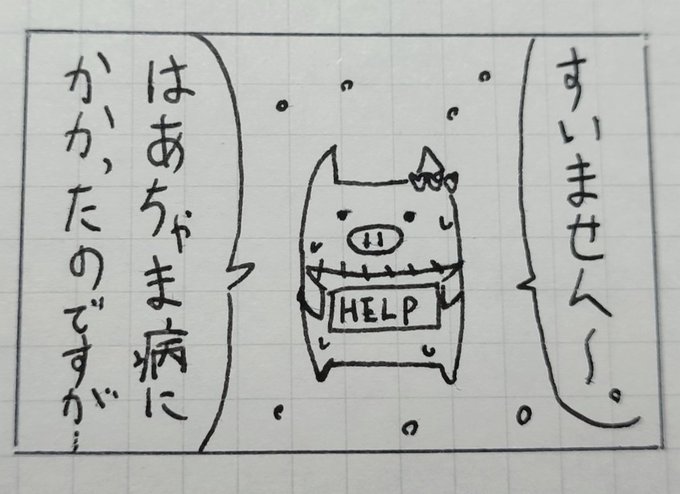 すいません〜。
HELP
はあちゃま病に
かかったのですが…